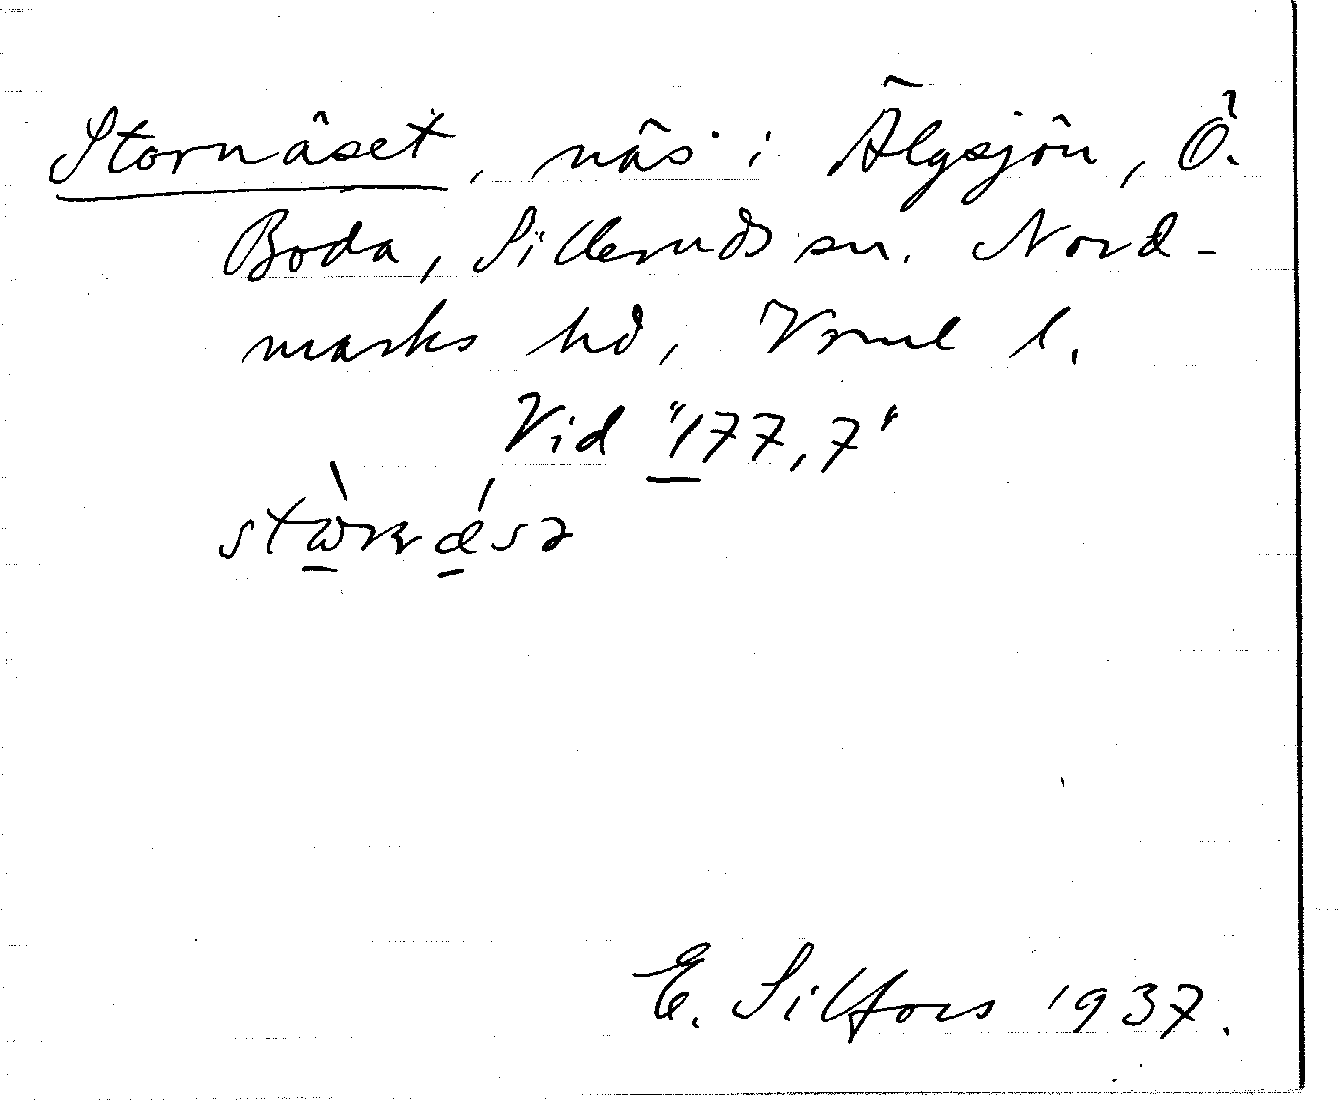 Stornäset, näs i Älgsjön, Ö.
Boda, Silleruds sn. Nord-
marks hd, Vrml l.
Vid "177,7"
E. Silfors 1937.